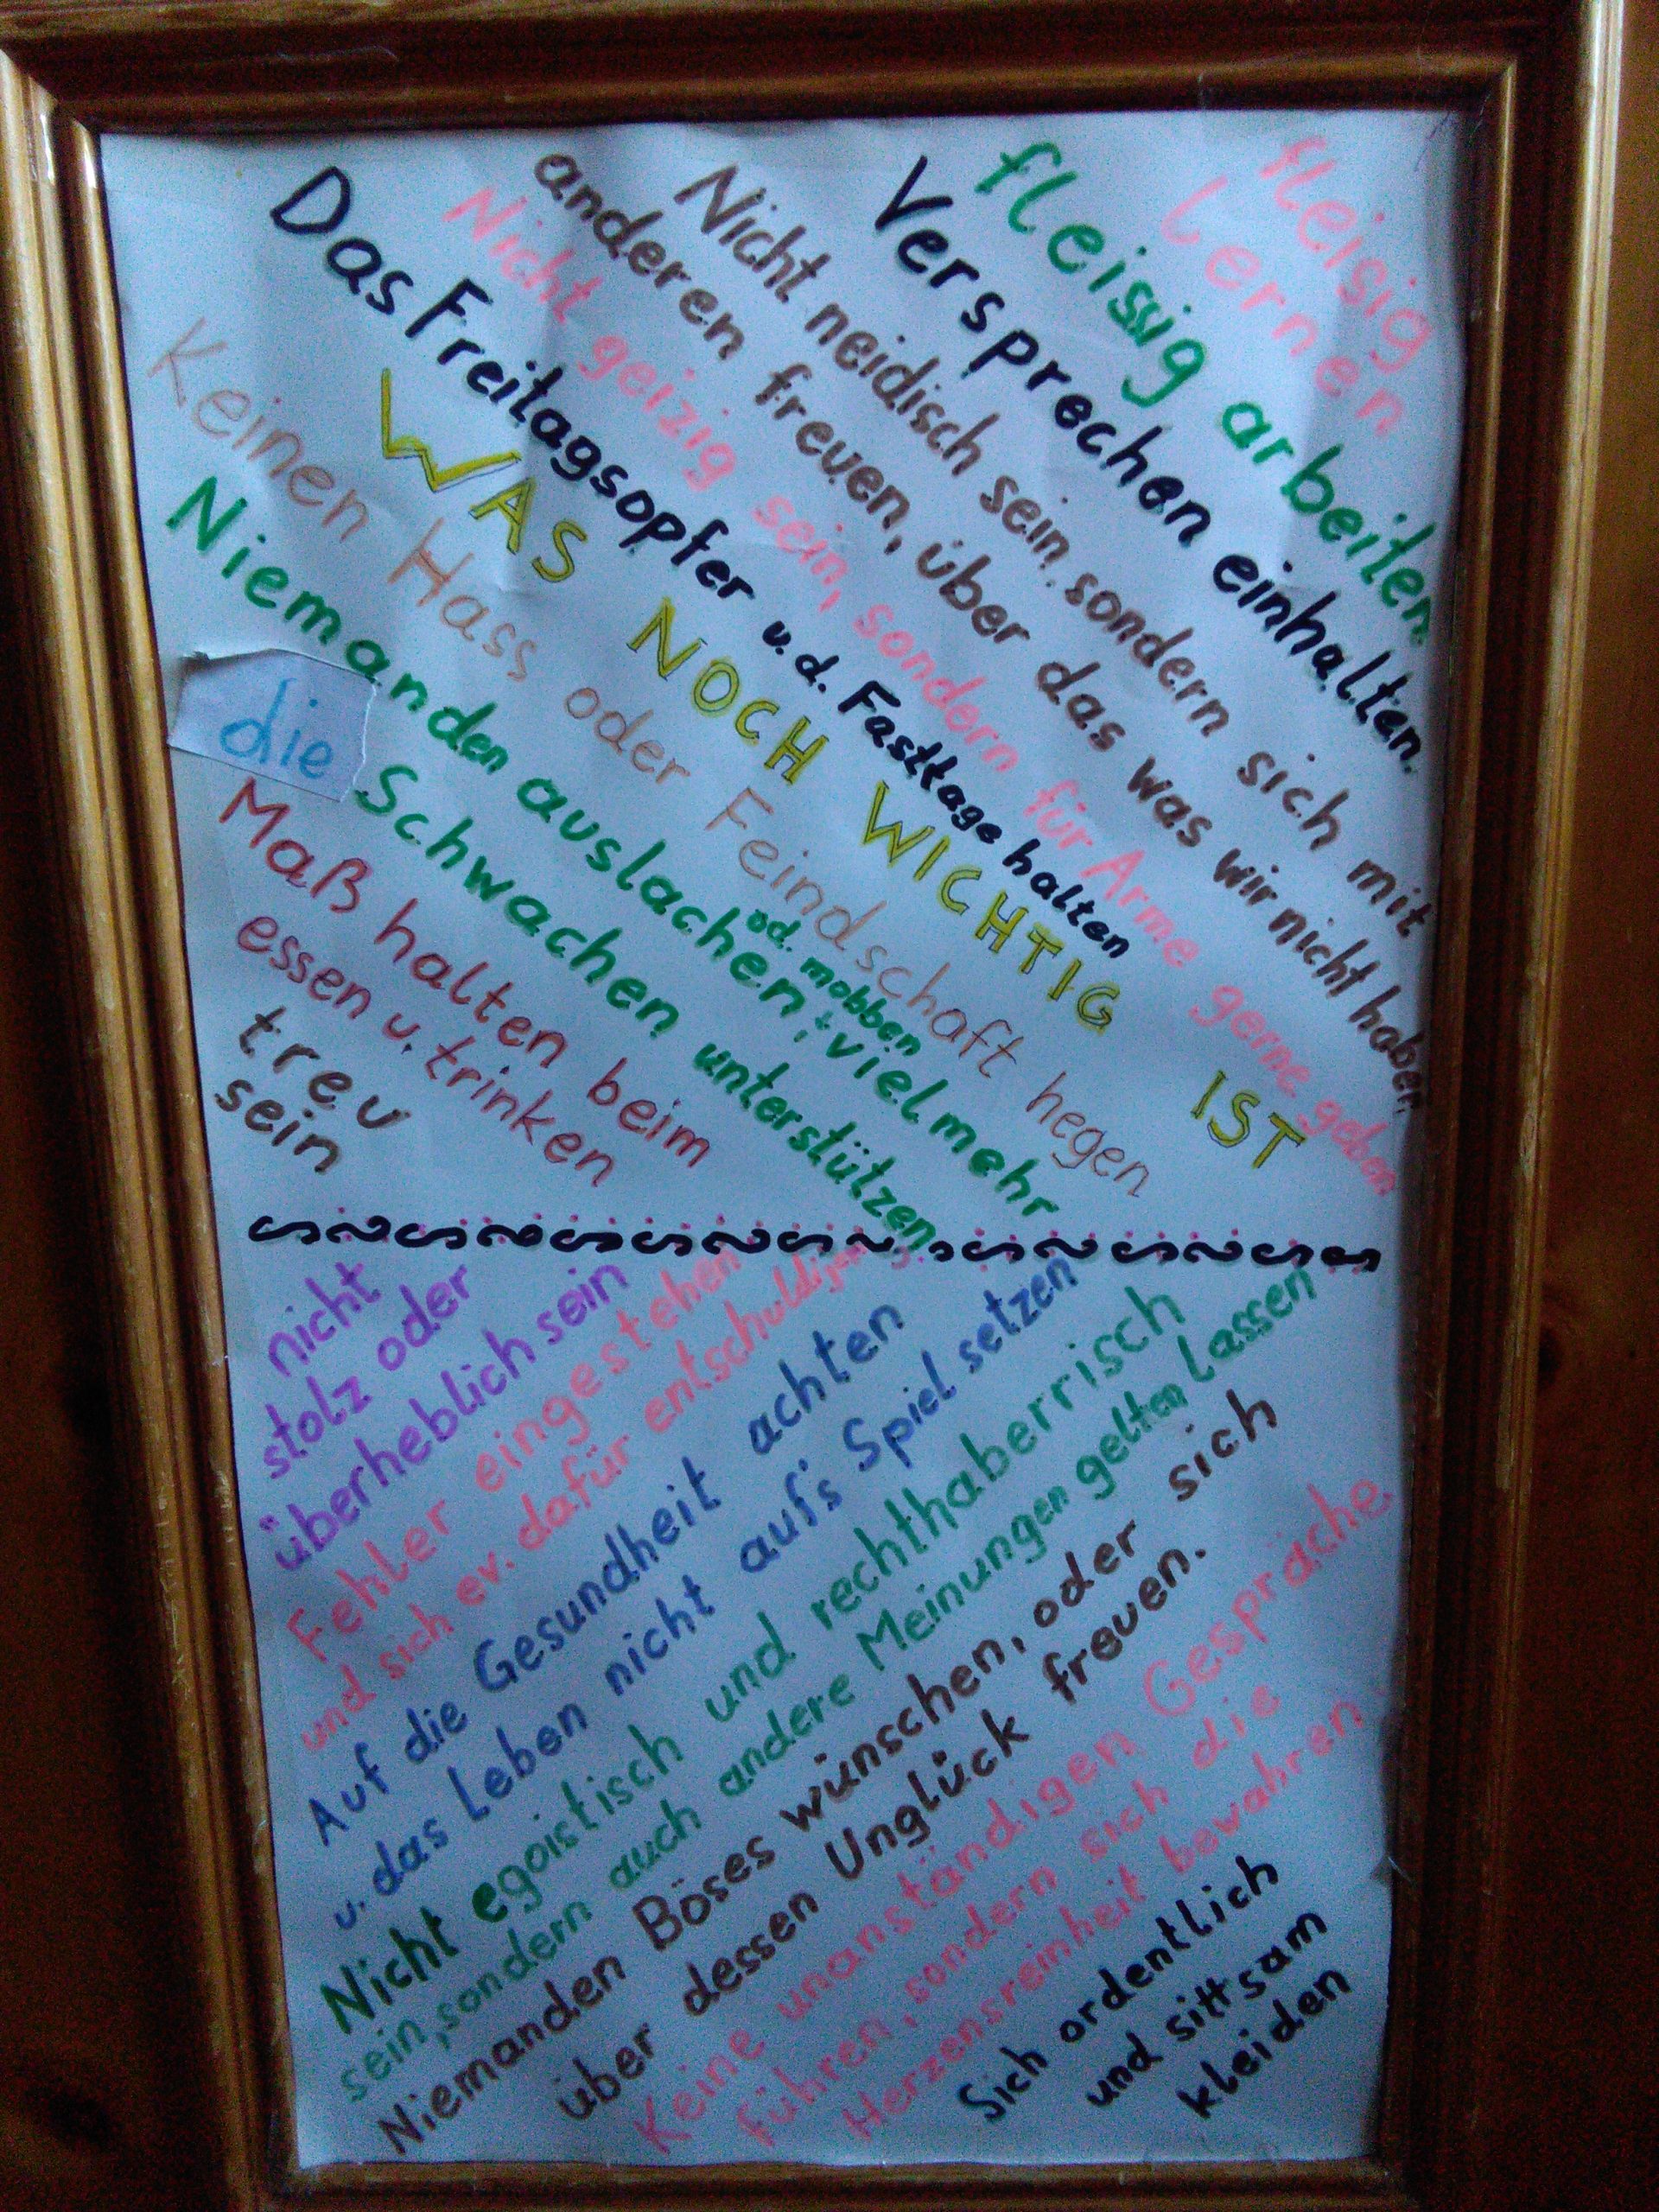 fleisig
lernen
fleissig arbeiten
Versprechen einhalten.
Nicht neidisch sein, sondern sich mit
anderen freuen, über das was wir nicht haben.
Nicht geizig sein, sondern für Arme gerne geben
Das Freitagsopfer u.d. Fasttage halten
WAS NOCH WICHTIG IST
Keinen Hass oder Feindschaft hegen
od. mobben
Niemanden auslachen, vielmehr
die Schwachen unterstützen
Maß halten beim
essen u. trinken
treu
sein
nicht
stolz oder
überheblich sein
Fehler eingestehen
und sich ev. dafür entschuldigen
Auf die Gesundheit achten
u. das Leben nicht auf's Spiel setzen
Nicht egoistisch und rechthaberrisch
sein, sondern auch andere Meinungen gelten lassen
Niemanden Böses wünschen, oder sich
über dessen Unglück freuen.
Keine unanständigen Gespräche
führen, sondern sich die
Herzensreinheit bewahren
Sich ordentlich
und sittsam
kleiden